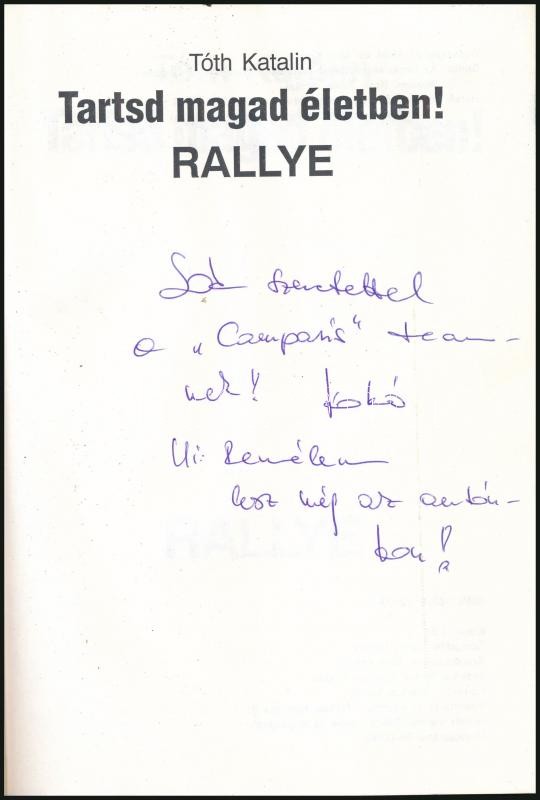 Tóth Katalin
Tartsd magad életben!
RALLYE
Sok szeretettel
a „Camparis" team-
nek! Kokó
Ui: Remélem
lesz még az autón-
kon!